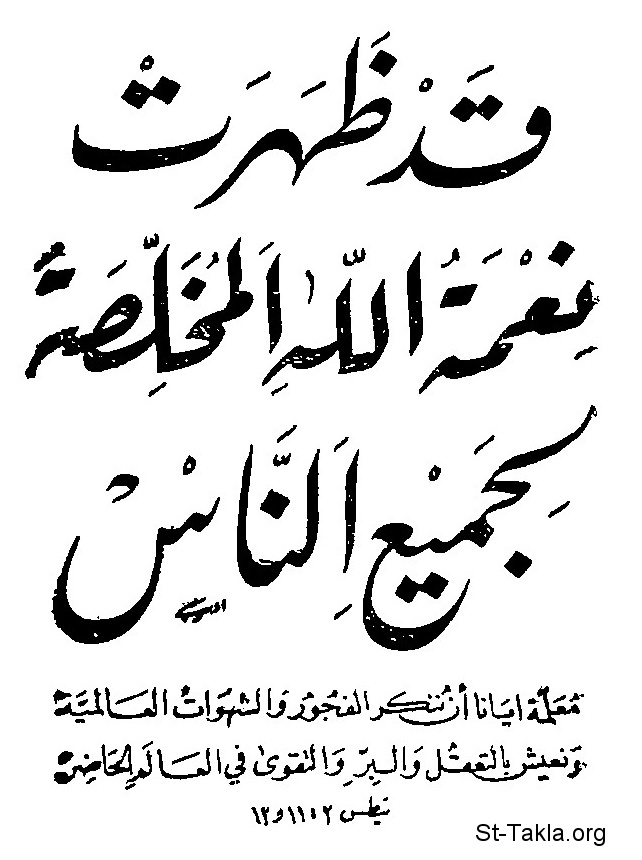 قَدْ ظَهَرَتْ
نِعْمَةُ اللّٰهِ اَلمُخَلِّصَةُ
لِجَمِيْعِ اَلنَّاسْ
مُعَلِّمَةً ايَانا أنْ نُنكر الفُجُورَ وَالشهَوَاتُ العَالميَّة
وَنعيشَ بالتعقُل وَالبِرِّ وَالتقوىٰ في العَالمَ الحَاضِرْ
تيطس ٢ : ١١ و ١٢
St-Takla.org